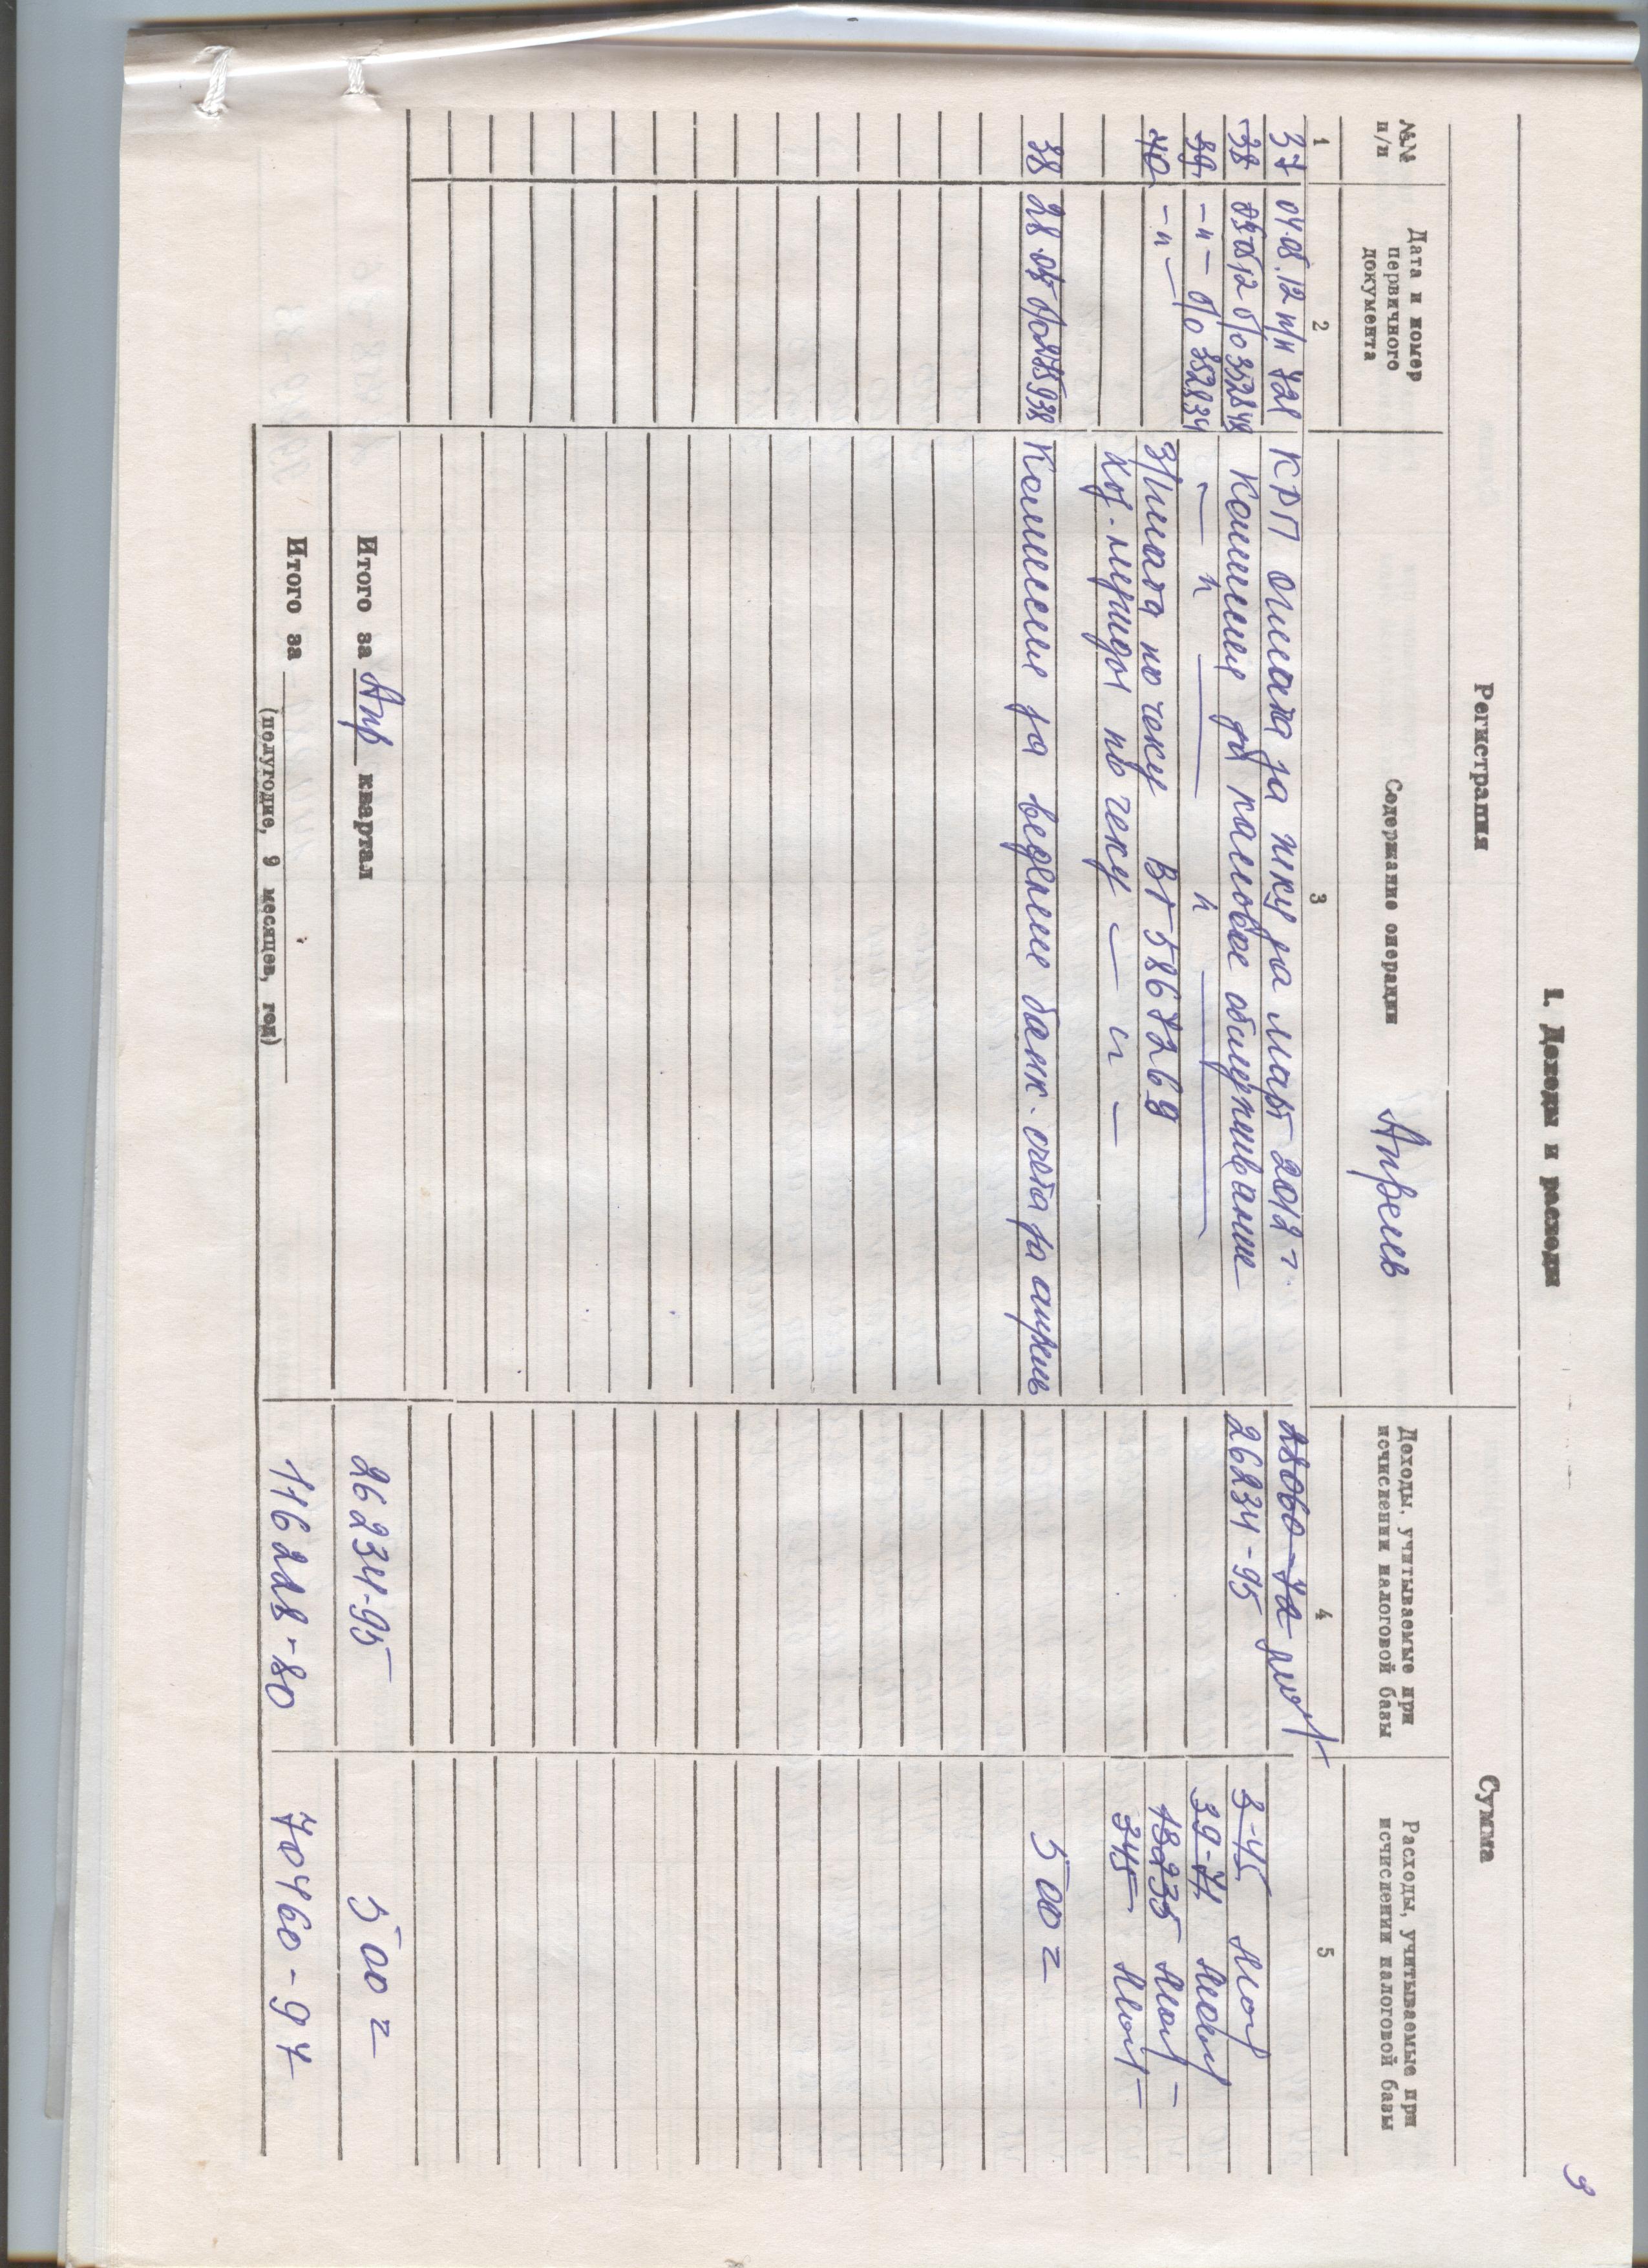 9
1. Доходы и расходы
Регистрация
Сумма
№№ п/п
Дата и номер первичного документа
Содержание операции
Апрель
Доходы, учитываемые при исчислении налоговой базы
Расходы, учитываемые при исчислении налоговой базы
1 2 3 4 5
37 04.05.12 п/п 721 КРП оплата за пку за март 2012 г. 28060-72
38 п/о 352848 Комиссия за кассовое обслуживание 26234-95 3-45
39 -"- п/о 352834 — " — " — 39-71
40 -"- З/плата по чеку ВГ 5867269 13235
хоз. нужды по чеку — " — 345
38 28.05 Комиссия за ведение банк. счета за апрель 500=
Итого за Апр квартал 26234-95 500=
Итого за 116228-80 70460-97
(полугодие, 9 месяцев, год)